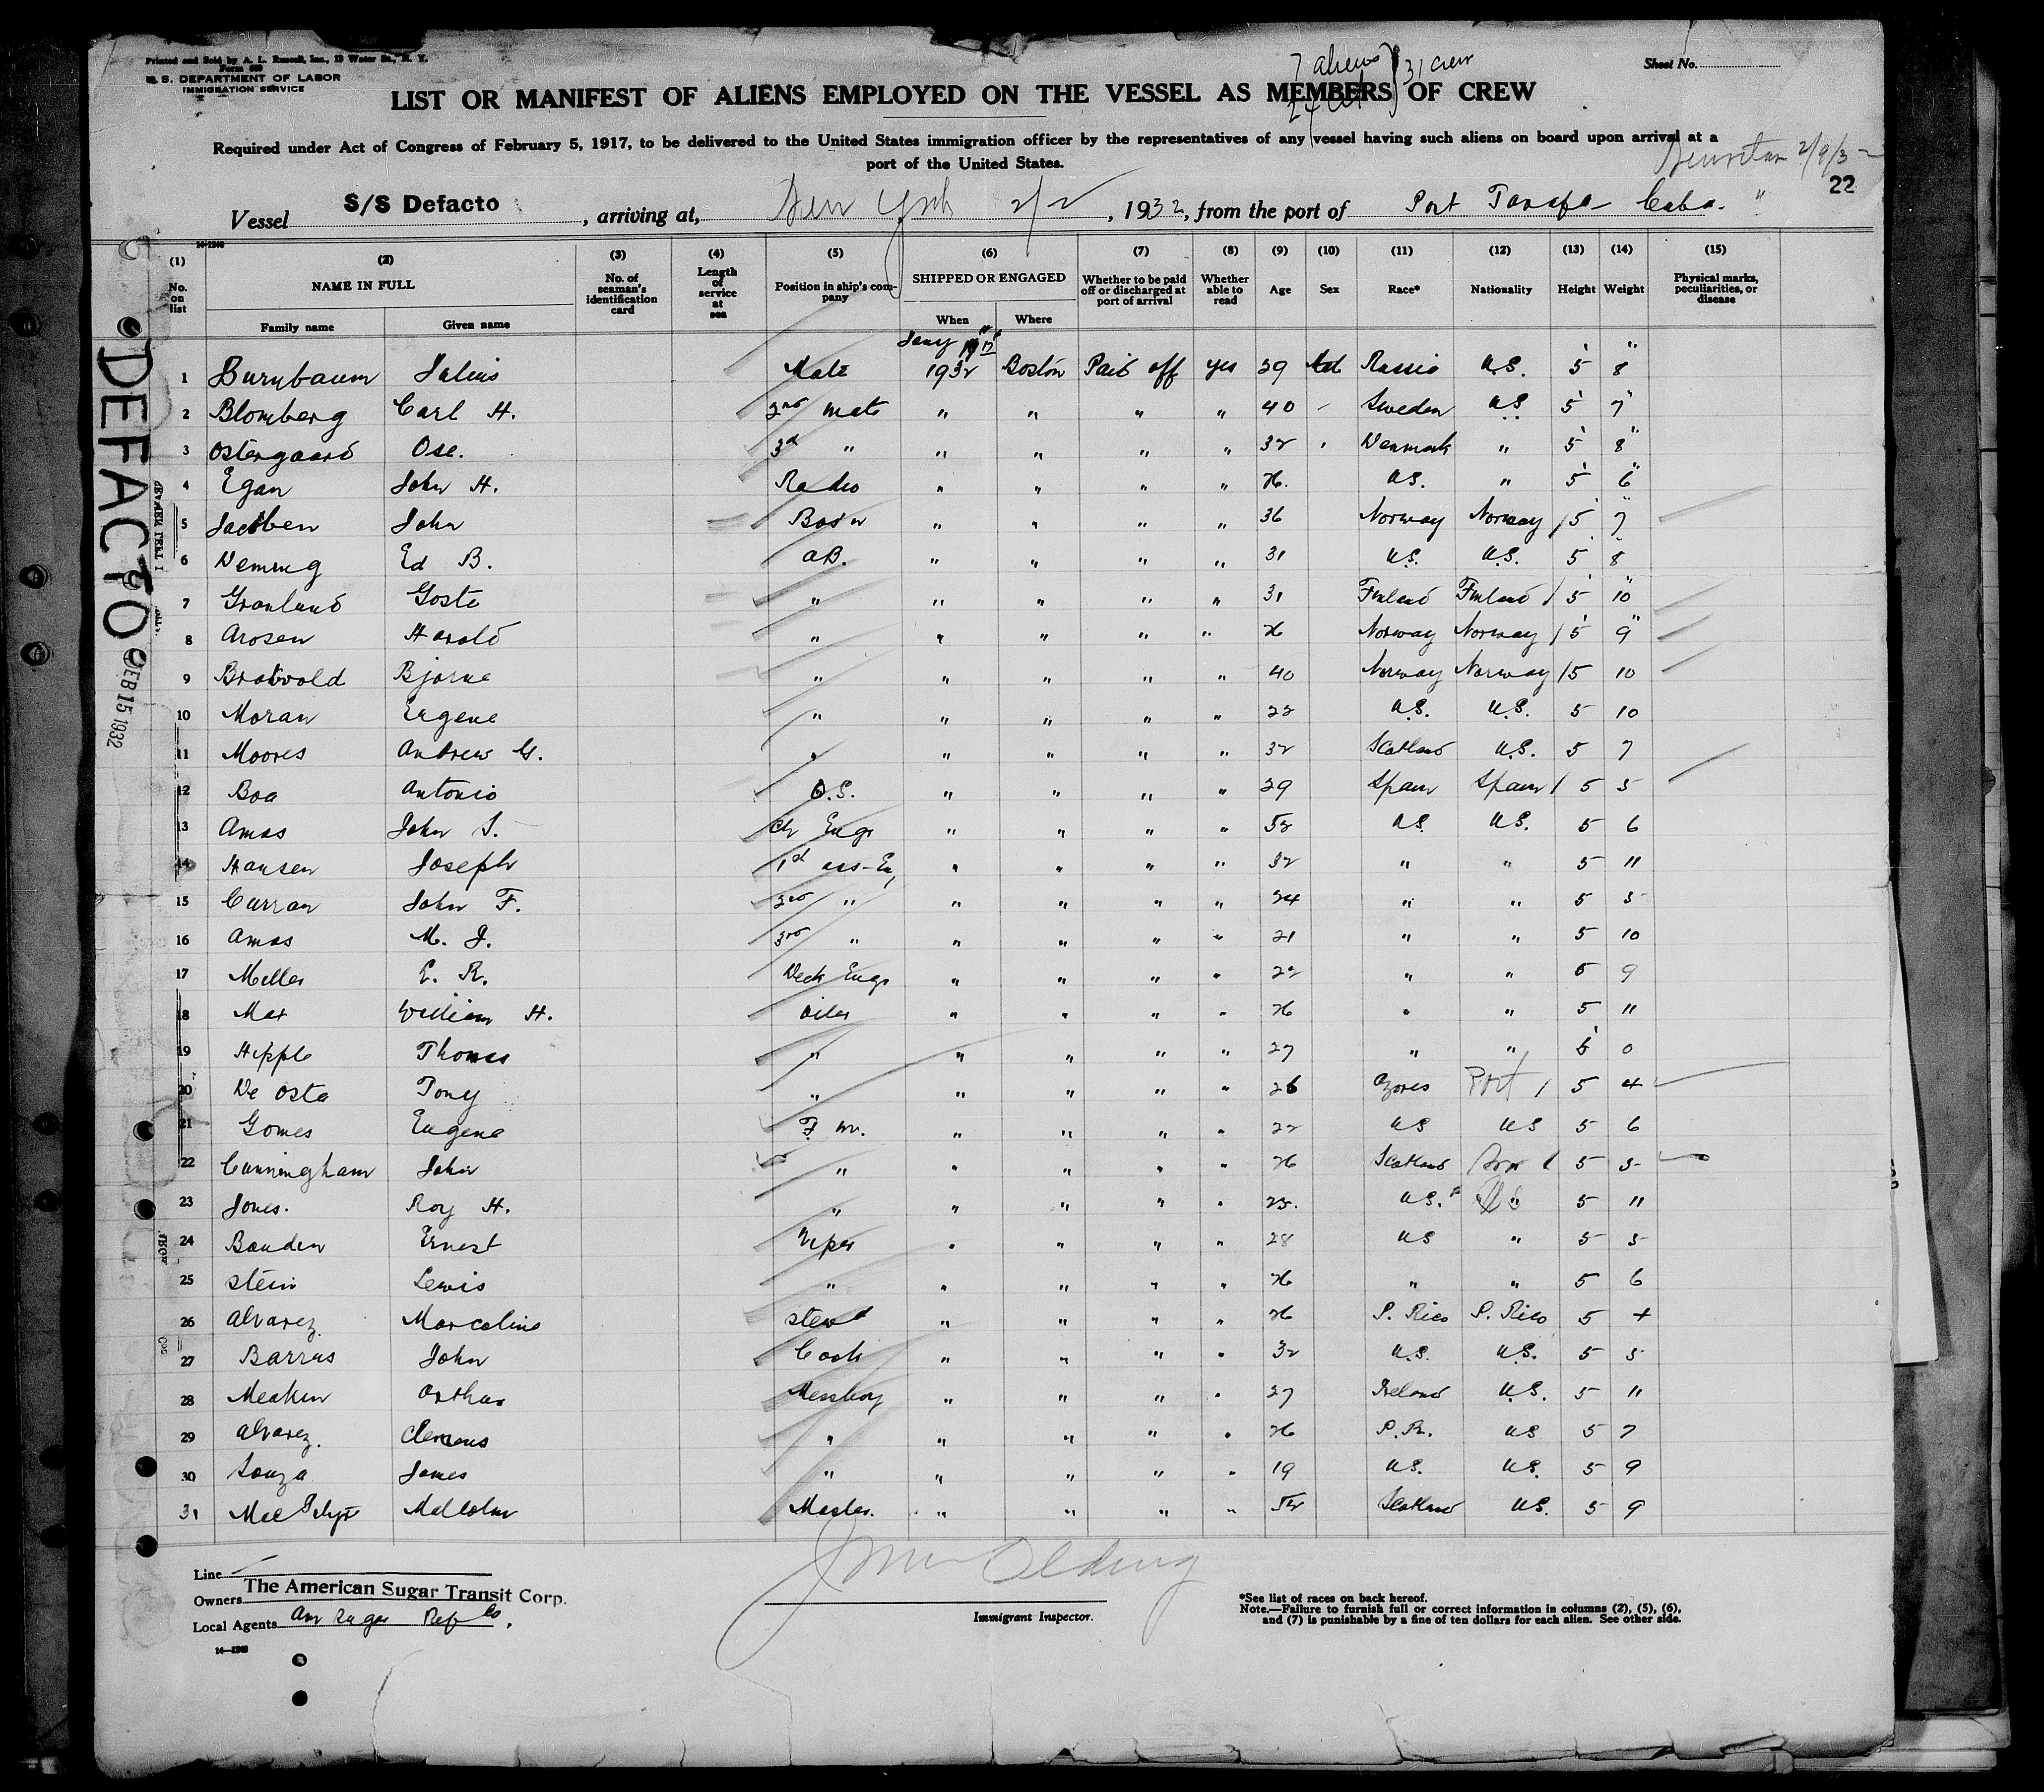 Printed and Sold by A. L. Russell, Inc., 19 Water St., N. Y.
Form 680
U. S. DEPARTMENT OF LABOR
IMMIGRATION SERVICE
7 aliens
31 crew
Sheet No.
LIST OR MANIFEST OF ALIENS EMPLOYED ON THE VESSEL AS MEMBERS OF CREW
Required under Act of Congress of February 5, 1917, to be delivered to the United States immigration officer by the representatives of any vessel having such aliens on board upon arrival at a
port of the United States.
2/9/32
22
Vessel S/S Defacto, arriving at, New York 2/2, 1932, from the port of Port Tarafa Cuba.
(1) (2) (3) (4) (5) (6) (7) (8) (9) (10) (11) (12) (13) (14) (15)
No. on list NAME IN FULL No. of seaman's identification card Length of service at sea Position in ship's company SHIPPED OR ENGAGED Whether to be paid off or discharged at port of arrival Whether able to read Age Sex Race* Nationality Height Weight Physical marks, peculiarities, or disease
Family name Given name When Where
1 Burnbaum Julius Mate Jany 1932 Boston Paid off yes 29 Russia U.S. 5' 8"
2 Blomberg Carl H. 2nd mate " " " " 40 Sweden U.S 5' 7"
3 Ostergaard Ose. 3d " " " " " 32 Denmark " 5' 8"
4 Egan John H. Radio " " " " 26. U.S. " 5' 6"
5 John Bosn " " " " 36 Norway Norway 5' 7"
6 Deming Ed B. A.B. " " " " 31 U.S. U.S. 5 8
7 Granlund Gosta " " " " " 31 Finland Finland 5' 10"
8 Arosen Harold " " " " " 26 Norway Norway 5' 9"
9 Bratvold Bjarne " " " " " 40 Norway Norway 5 10
10 Moran Eugene " " " " " 22 U.S. U.S. 5 10
11 Moores Andrew G. " " " " " 32 Scotland U.S. 5 7
12 Boa Antonio O.S. " " " " 29 Spain Spain 5 5
13 Amas John S. Ch Engr " " " " 52 U.S. U.S. 5 6
14 Hansen Joseph 1st ass-En, " " " " 32 " " 5 11
15 Curran John F. 2nd " " " " " 24 " " 5 5
16 Amas M. J. 3rd " " " " " 21 " " 5 10
17 Miller E. R. Deck Engr " " " " 22 " " 5 9
18 May William H. Oiler " " " " 26 " " 5 11
19 Hipple Thomas " " " " " 27 " " 6 0
20 De Osta Tony " " " " " 26 Azores Port 5 4
21 Gomes Eugene F. W. " " " " 22 US US 5 6
22 Cunningham John " " " " " 26 Scotland 5 5
23 Jones. Roy H. " " " " " 25. U.S. US 5 11
24 Bauden Ernest Wiper " " " " 28 US " 5 5
25 Stein Lewis " " " " " 26 " " 5 6
26 Alvarez Marcolino Stewd " " " " 26 P. Rico P. Rico 5 4
27 Barrus John Cook " " " " 32 U.S. U.S. 5 5
28 Meakin Arthur Messboy " " " " 27 Ireland U.S. 5 11
29 Alvarez. Clemens " " " " " 26 P.R. US 5 7
30 Souza James " " " " " 19 U.S. U.S. 5 9
31 Malcolm Master. " " " " 52 Scotland U.S. 5 9
Line
Owners The American Sugar Transit Corp.
Local Agents Am Sugar Ref Co.
Immigrant Inspector.
*See list of races on back hereof.
Note.—Failure to furnish full or correct information in columns (2), (5), (6),
and (7) is punishable by a fine of ten dollars for each alien. See other side.
14—1240
DEFACTO
FEB 15 1932